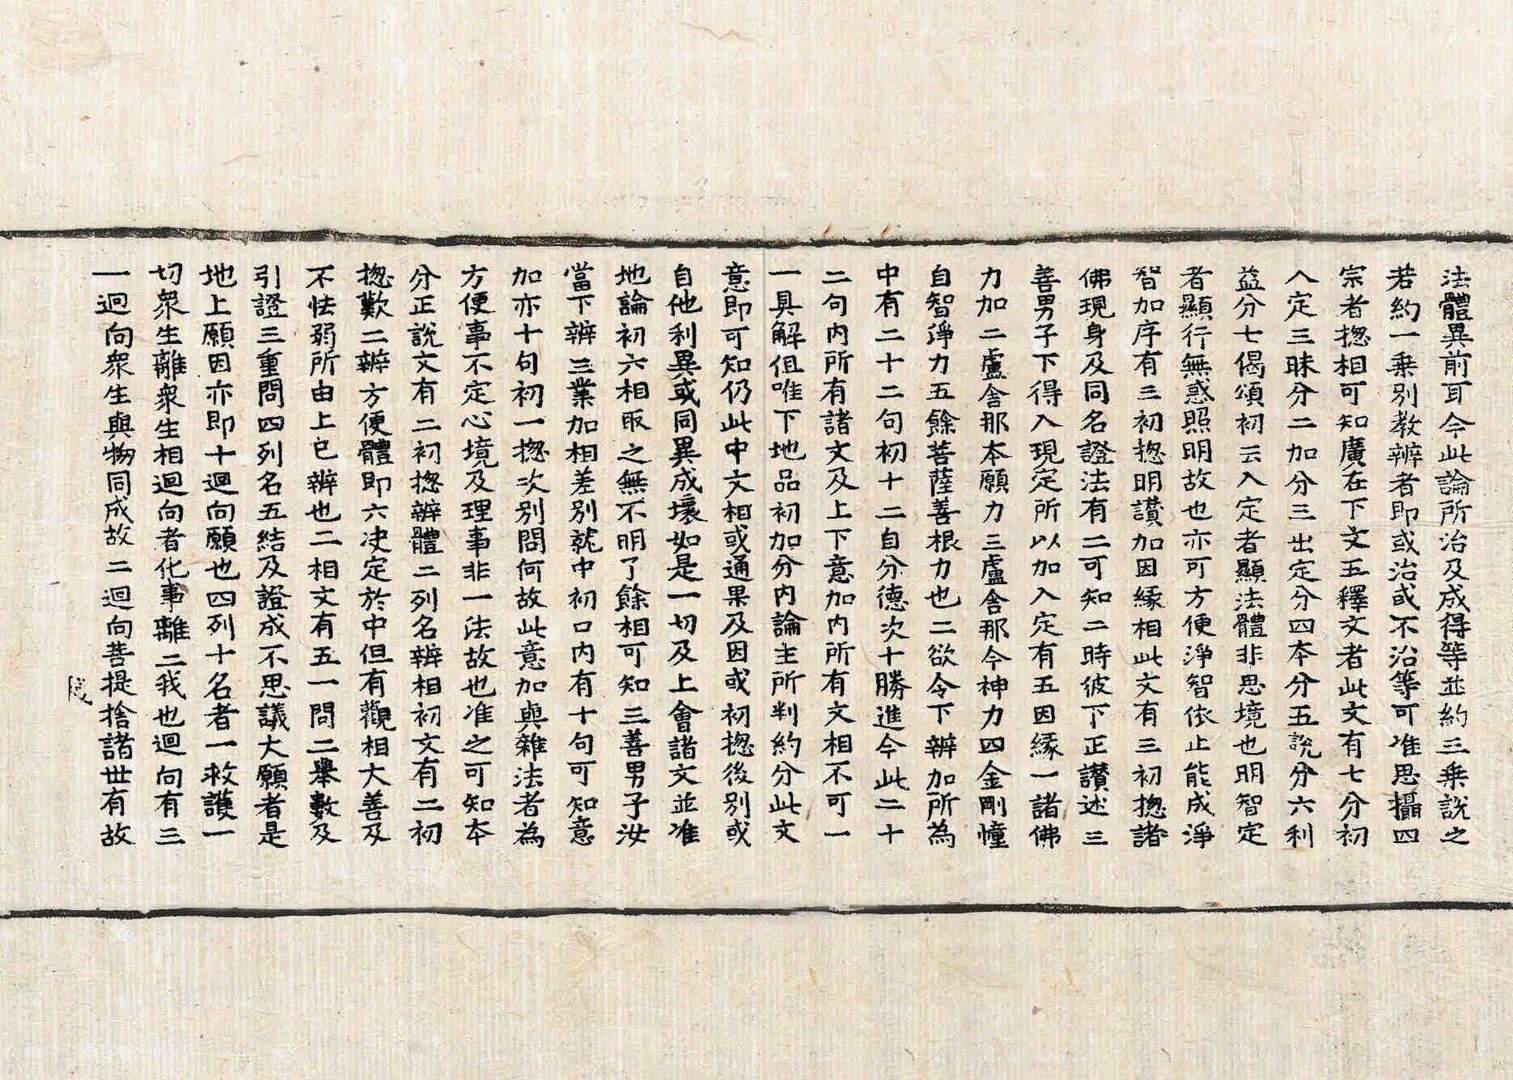 法體異前耳今此論所治及成得等並約三乗説之
若約一乗別教辨者即或治或不治等可准思攝四
宗者揔相可知廣在下文五釋文者此文有七分初
入定三昧分二加分三出定分四本分五説分六利
益分七偈頌初云入定者顯法體非思境也明智定
者顯行無惑照明故也亦可方便淨智依止能成淨
智加序有三初揔明讃加因縁相此文有三初揔諸
佛現身及同名證法有二可知二時彼下正讃述三
善男子下得入現定所以加入定有五因縁一諸佛
力加二盧舎那本願力三盧舎那今神力四金剛憧
自智淨力五餘菩薩善根力也二欲令下辨加所為
中有二十二句初十二自分德次十勝進今此二十
二句内所有諸文及上下意加内所有文相不可一
一具解但唯下地品初加分内論主所判約分此文
意即可知仍此中文相或通果及因或初揔後別或
自他利異或同異成壞如是一切及上會諸文並准
地論初六相取之無不明了餘相可知三善男子汝
當下辨三業加相差別就中初口内有十句可知意
加亦十句初一揔次別問何故此意加與雜法者為
方便事不定心境及理事非一法故也准之可知本
分正説文有二初揔辨體二列名辨相初文有二初
揔歎二辨方便體即六決定於中但有觀相大善及
不怯弱所由上已辨也二相文有五一問二舉數及
引證三重問四列名五結及證成不思議大願者是
地上願因亦即十迴向願也四列十名者一救護一
切衆生離衆生相迴向者化事離二我也迴向有三
一迴向衆生與物同成故二迴向菩提捨諸世有故